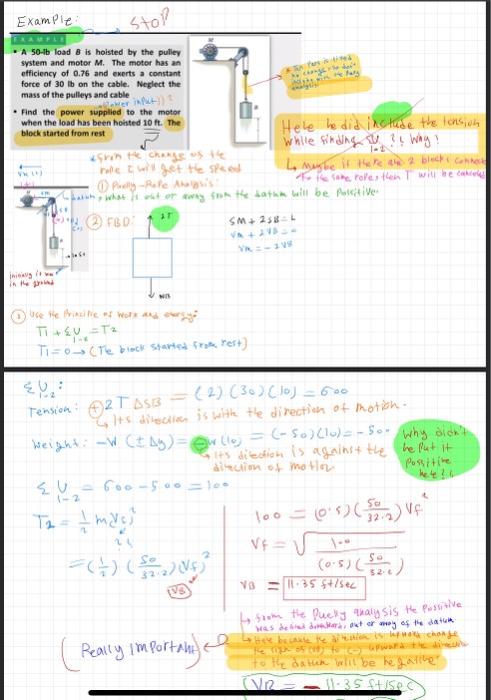 Example: STOP
EXAMPLE
• A 50-lb load B is hoisted by the pulley
system and motor M. The motor has an
efficiency of 0.76 and exerts a constant
force of 30 lb on the cable. Neglect the
mass of the pulleys and cable
(Power input)
• Find the power supplied to the motor
when the load has been hoisted 10 ft. The
block started from rest
Here he did include the tension
while finding ΣU 1-2 ?! Why?
↳ Maybe if there are 2 blocks connected
to the same rope, then T will be canceled
* From the change of the
rope I will get the speed
① Pully-Rope Analysis:
datum, what is out or away from the datum will be Possitive.
② FBD:
2T
WB
SM + 2SB = L
VM + 2VB = 0
VM = -2VB
initially it was
in the ground
③ Use the Principle of work and energy:
T1 + ΣU 1-2 = T2
T1 = 0 → (The block started from rest)
ΣU 1-2 :
Tension: ⊕ 2T ΔSB = (2)(30)(10) = 600
↳ Its direction is with the direction of motion.
Weight: -W (± Δy) = ⊖W(10) = (-50)(10) = -500
↳ Its direction is against the
direction of motion
Why didn't
he Put it
Possitive
here?!
ΣU 1-2 = 600 - 500 = 100
T2 = 1/2 m(Vf)²
= (1/2)(50/32.2)(Vf)²
(VB)
100 = (0.5)(50/32.2) Vf²
Vf = √ 100 / (0.5)(50/32.2)
VB = 11.35 ft/sec
↳ From the Puelly analysis the Possitive
was defined downward, out or away of the datum
↳ Here because the direction is upward change
the sign of (VB) to (-) upward the direction
to the datum will be negative.
(Really important)
VB = -11.35 ft/sec